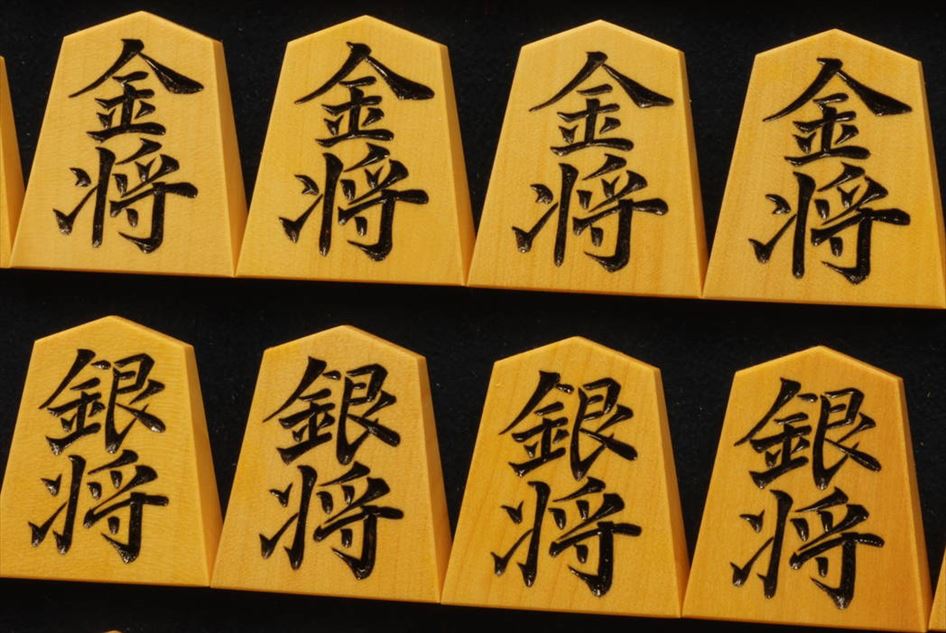 金将
金将
金将
金将
銀将
銀将
銀将
銀将